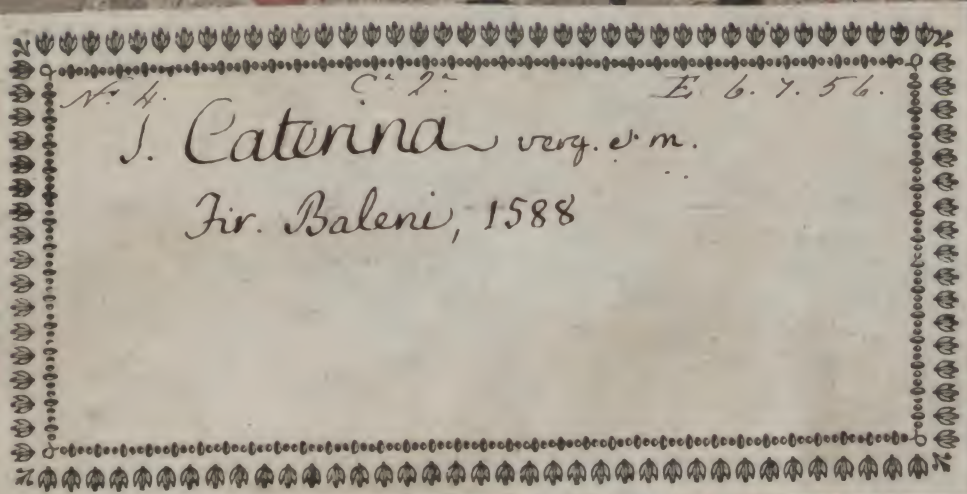 No. 4. Ca. 2a. E. 6. 7. 56.
S. Caterina verg. e m.
Fir. Baleni, 1588